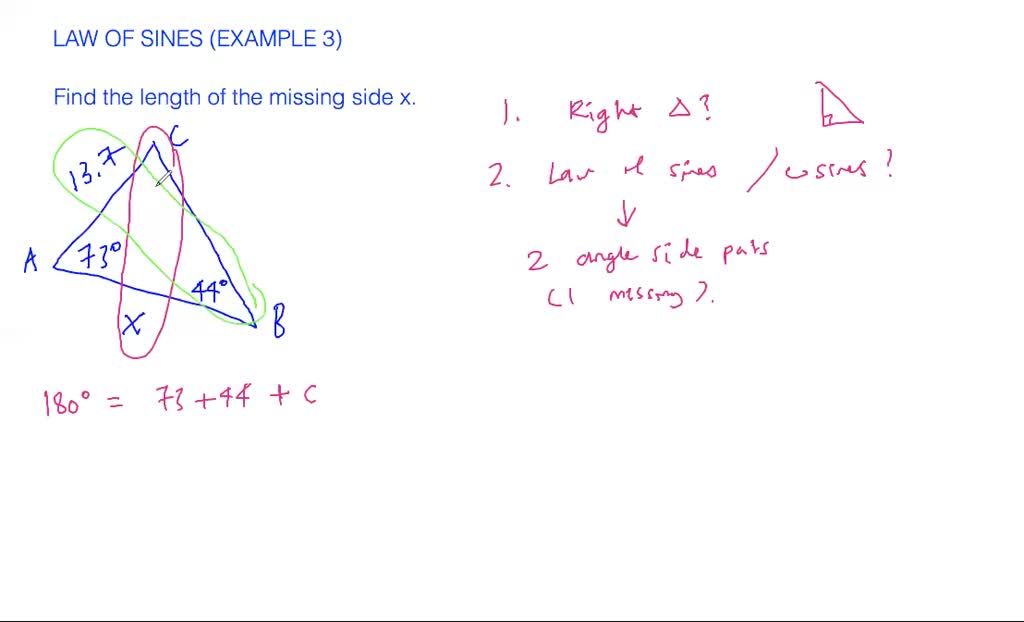 LAW OF SINES (EXAMPLE 3)
Find the length of the missing side x.
C
13.7
A
73°
44°
X
B
180° = 73 + 44 + C
1. Right Δ?
2. Law of sines / cosines ?
↓
2 angle side pairs
(1 missing).